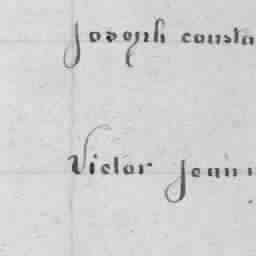 Joseph consta
Victor Jean